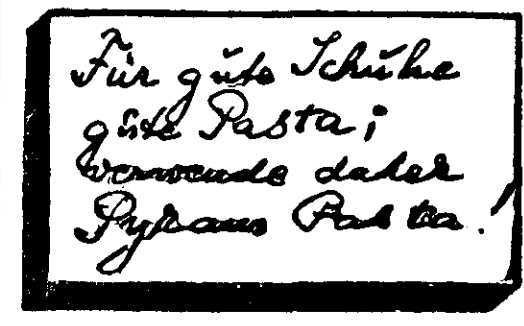 Für gute Schuhe
gute Pasta;
verwende daher
Pyrams Pasta!